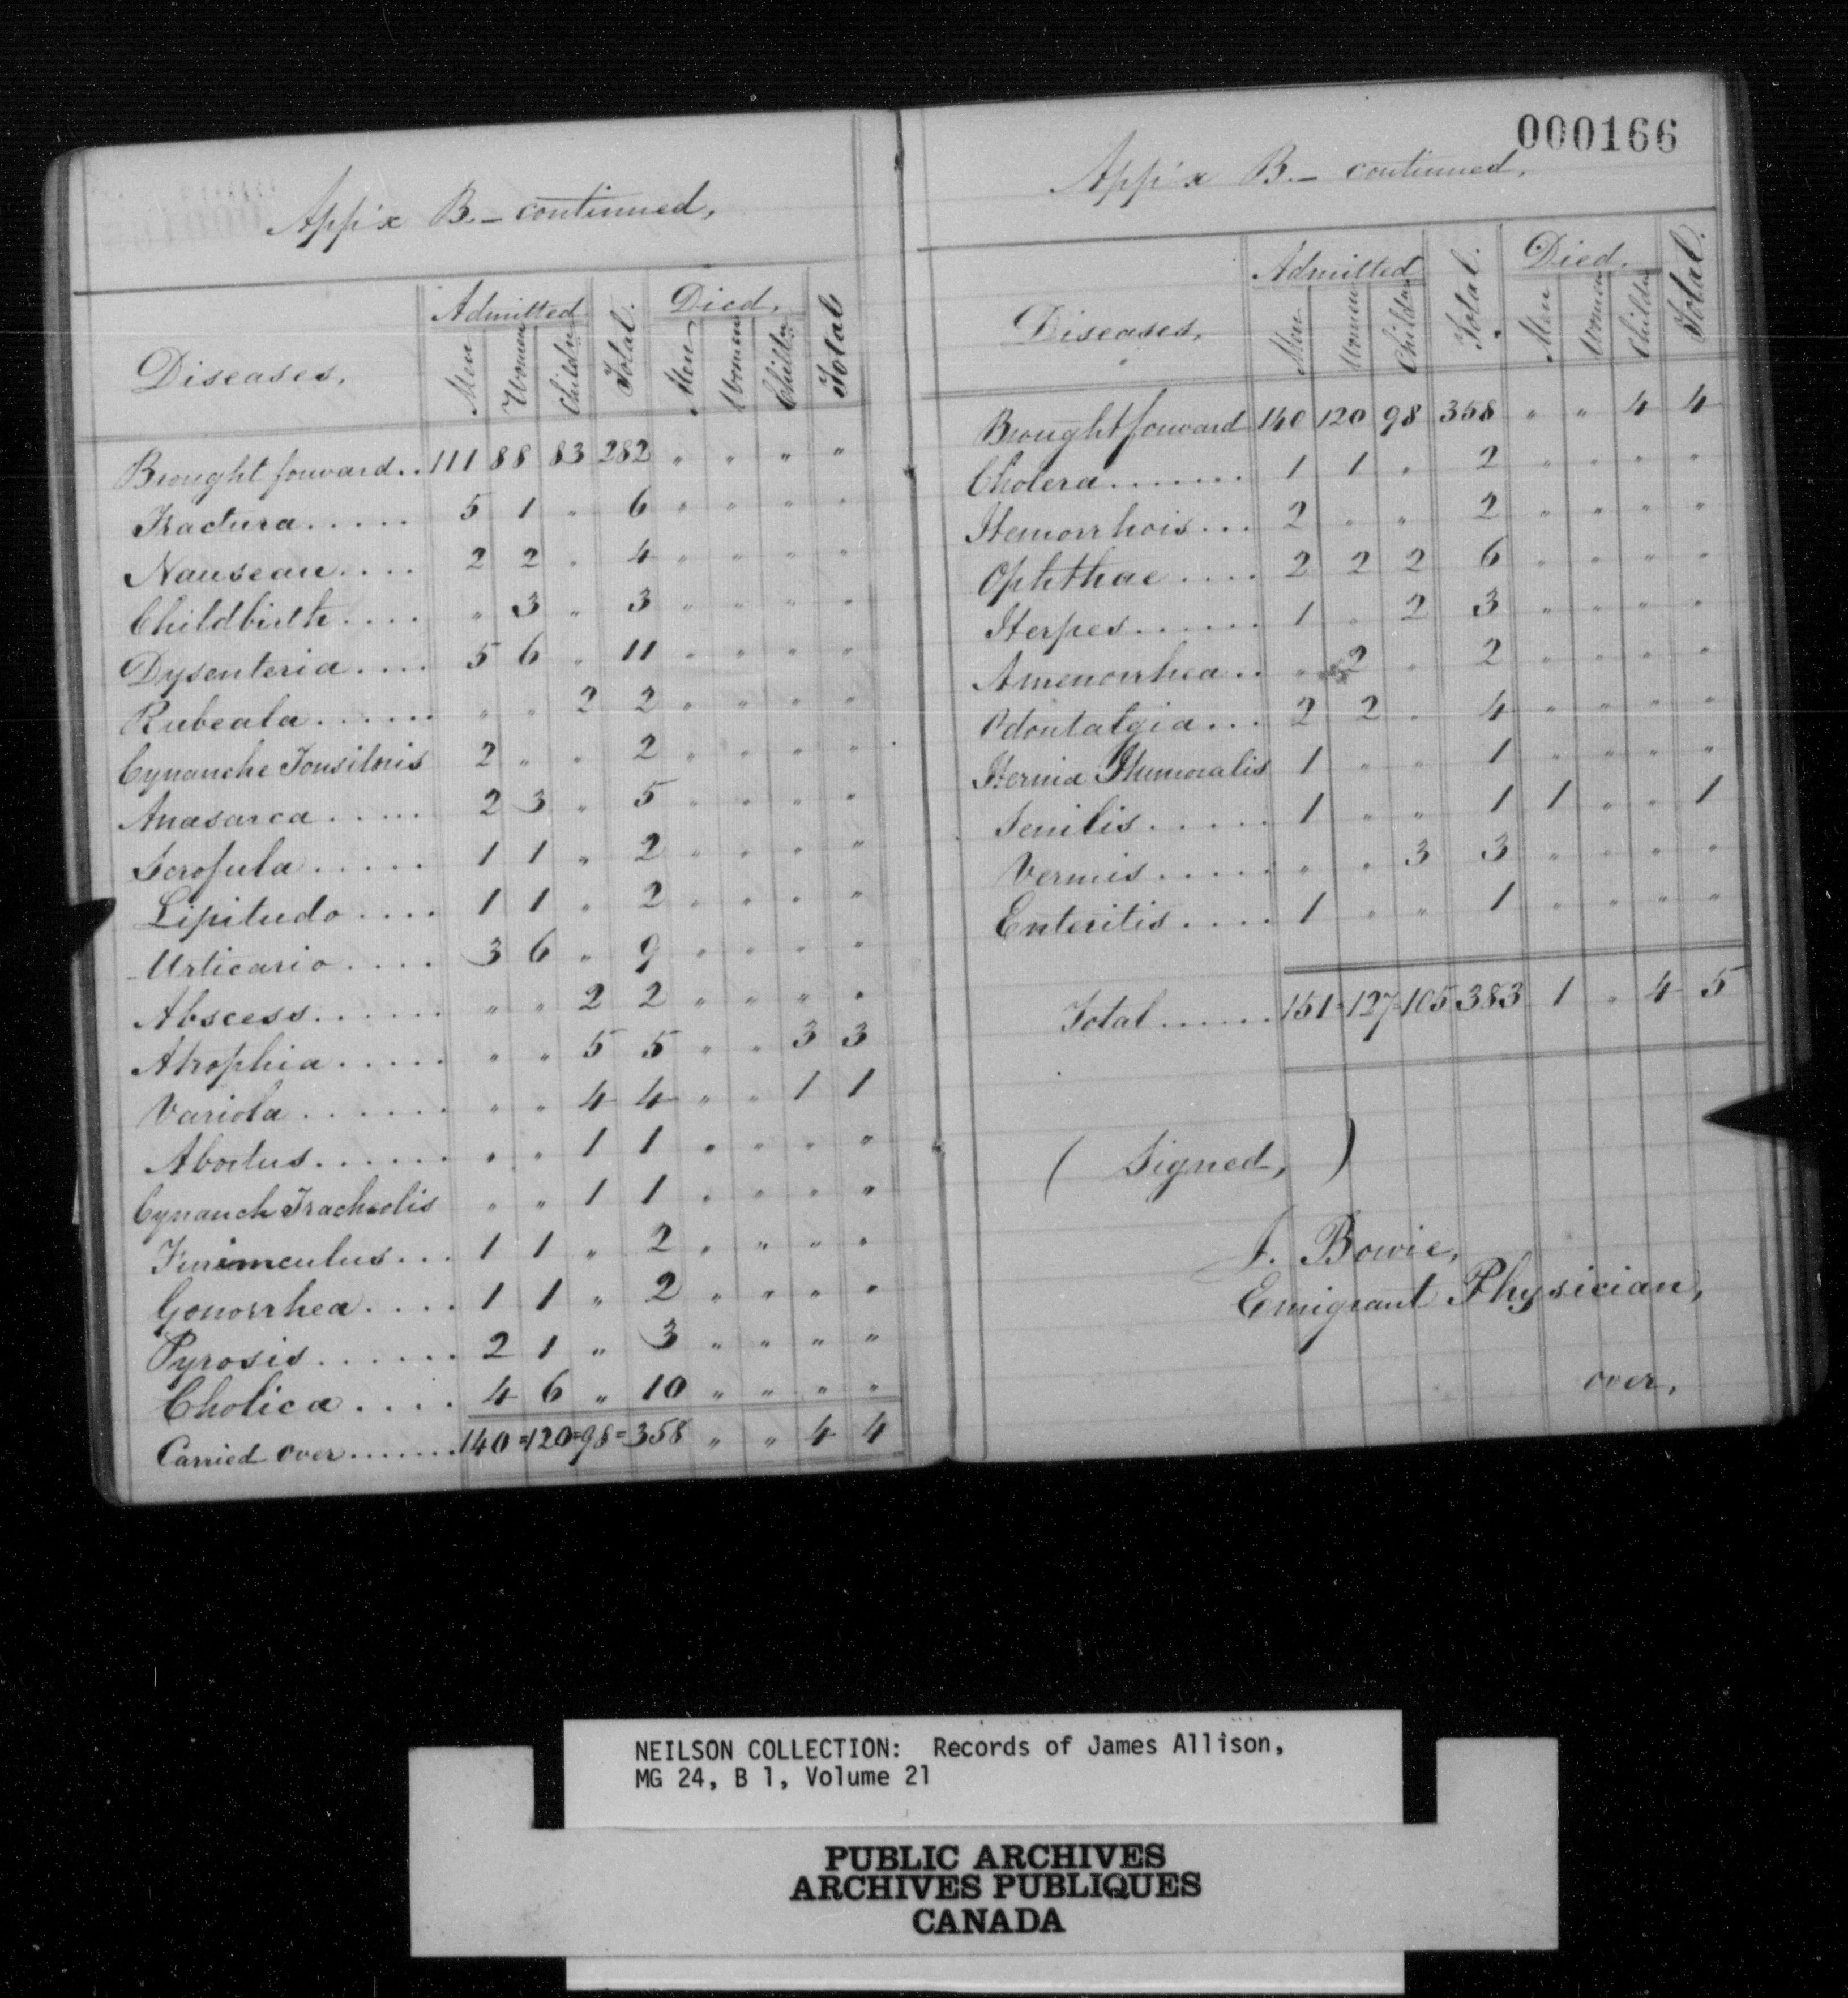 App'x B.– continued,
Diseases.
Admitted
Total.
Died.
Total
Men Women Childn Men Women Childn
Brought forward.. 111 88 83 282 " " " "
Fractura..... 5 1 " 6 " " " "
Nauseau.... 2 2 " 4 " " " "
Childbirth.... " 3 " 3 " " " "
Dysenteria.... 5 6 " 11 " " " "
Rubeala...... " " 2 2 " " " "
Cynanche Tonsiloris 2 " " 2 " " " "
Anasarca..... 2 3 " 5 " " " "
Scrofula..... 1 1 " 2 " " " "
Lipitudo.... 1 1 " 2 " " " "
Urticario.... 3 6 " 9 " " " "
Abscess...... " " 2 2 " " " "
Atrophia..... " " 5 5 " " 3 3
Variola...... " " 4 4 " " 1 1
Abortus...... " " 1 1 " " " "
Cynanch Tracheolis " " 1 1 " " " "
Furimculus... 1 1 " 2 " " " "
Gonorrhea.... 1 1 " 2 " " " "
Pyrosis...... 2 1 " 3 " " " "
Cholica.... 4 6 " 10 " " " "
Carried over....... 140=120=98=358 " " 4 4
000166
App'x B.– continued,
Diseases.
Admitted
Total.
Died.
Total.
Men Women Childn Men Women Childn
Brought forward 140 120 98 358 " " 4 4
Cholera....... 1 1 " 2 " " " "
Hemorrhois... 2 " " 2 " " " "
Ophthae.... 2 2 2 6 " " " "
Herpes...... 1 " 2 3 " " " "
Amenorrhea.. " 2 " 2 " " " "
Odontalgia... 2 2 " 4 " " " "
Hernia Humoralis 1 " " 1 " " " "
Senilis...... 1 " " 1 1 " " 1
Vermis..... " " 3 3 " " " "
Enteritis.... 1 " " 1 " " " "
Total...... 151=127=105 383 1 " 4 5
( Signed, )
J. Bowie,
Emigrant Physician,
over.
NEILSON COLLECTION: Records of James Allison,
MG 24, B 1, Volume 21
PUBLIC ARCHIVES
ARCHIVES PUBLIQUES
CANADA